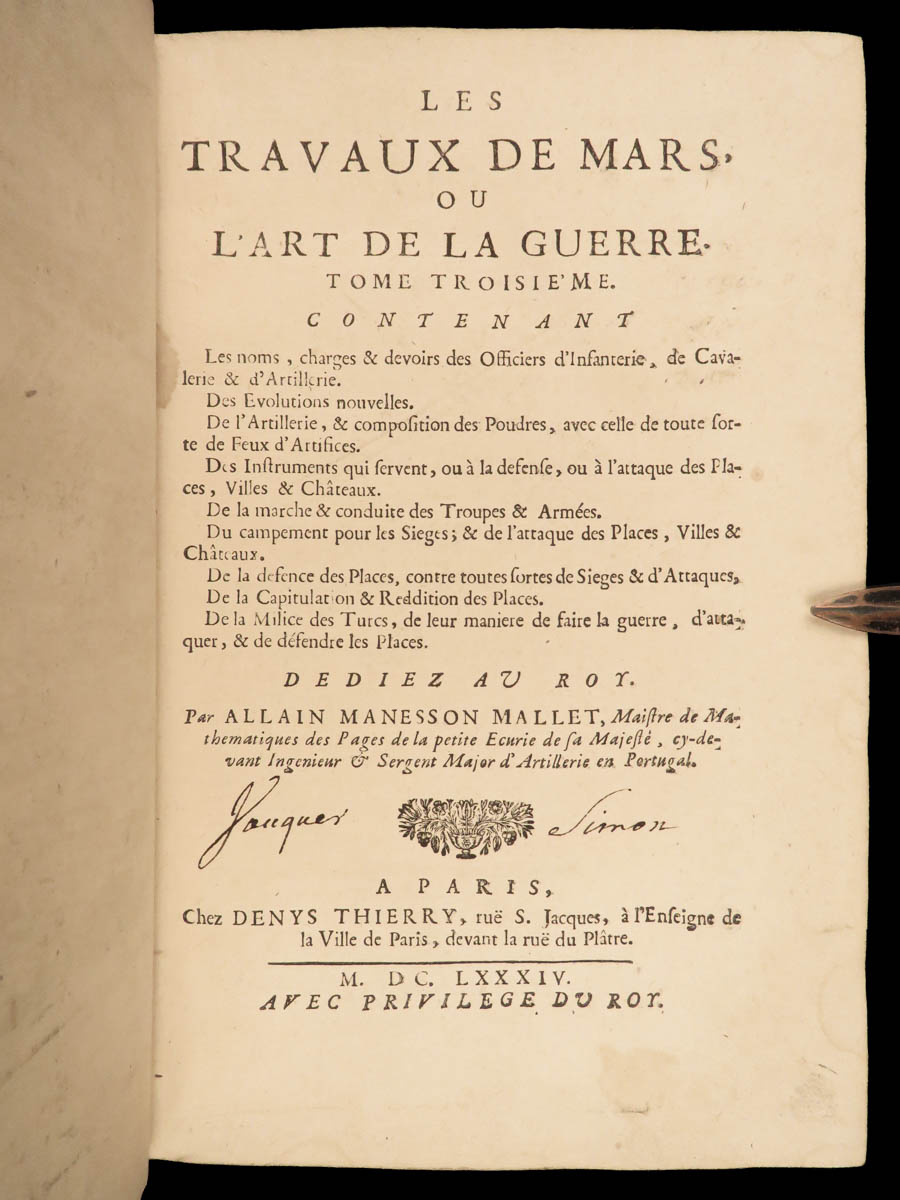 LES
TRAVAUX DE MARS,
OU
L'ART DE LA GUERRE.
TOME TROISIE'ME.
CONTENANT
Les noms, charges & devoirs des Officiers d'Infanterie, de Cava-
lerie & d'Artillerie.
Des Evolutions nouvelles.
De l'Artillerie, & compoſition des Poudres, avec celle de toute ſor-
te de Feux d'Artifices.
Des Inſtruments qui ſervent, ou à la defenſe, ou à l'attaque des Pla-
ces, Villes & Châteaux.
De la marche & conduite des Troupes & Armées.
Du campement pour les Sieges; & de l'attaque des Places, Villes &
Châteaux.
De la defence des Places, contre toutes ſortes de Sieges & d'Attaques,
De la Capitulation & Reddition des Places.
De la Milice des Turcs, de leur maniere de faire la guerre, d'atta-
quer, & de défendre les Places.
DEDIEZ AU ROY.
Par ALLAIN MANESSON MALLET, Maiſtre de Ma-
thematiques des Pages de la petite Ecurie de ſa Majeſté, cy-de-
vant Ingenieur & Sergent Major d'Artillerie en Portugal.
Simon
A PARIS,
Chez DENYS THIERRY, ruë S. Jacques, à l'Enſeigne de
la Ville de Paris, devant la ruë du Plâtre.
M. DC. LXXXIV.
AVEC PRIVILEGE DU ROY.